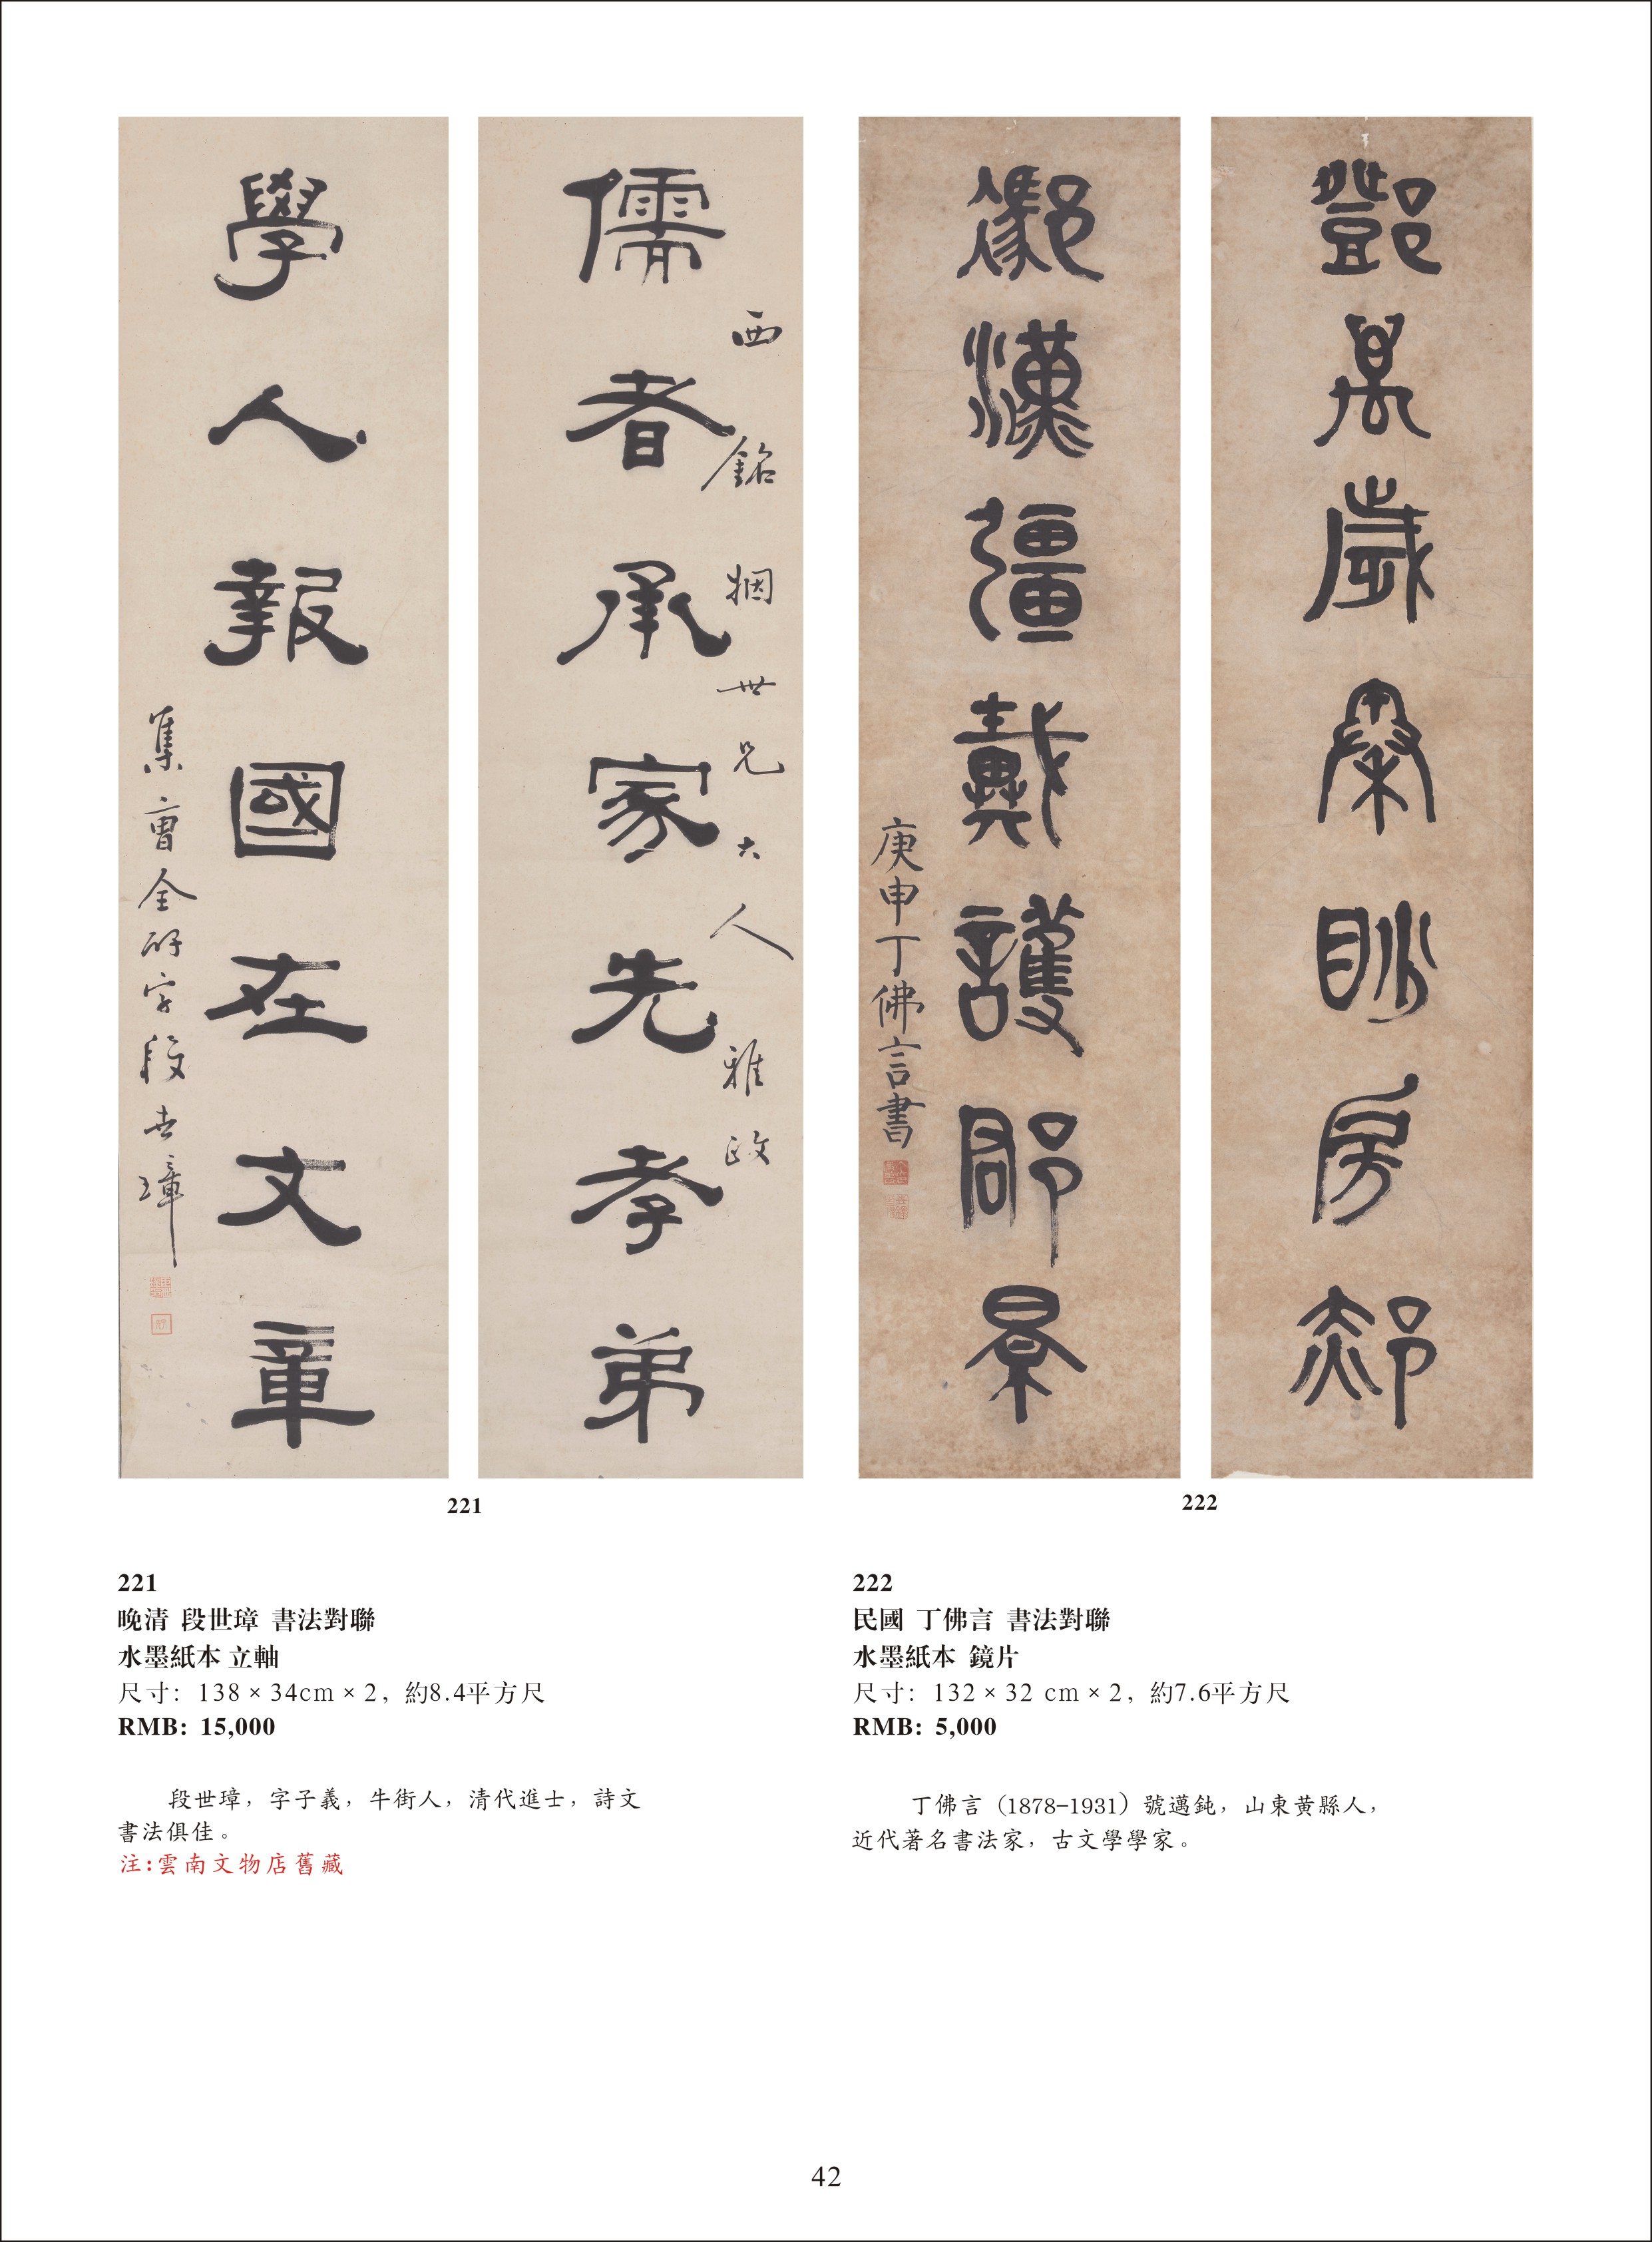 儒者承家先孝弟
西銘姻世兄大人雅政
學人報國在文章
集曹全碑字段世璋
鄧萬歲秦眇房郝
漢彊戴護郡景
庚申丁佛言書
221
222
221
晚清 段世璋 書法對聯
水墨紙本 立軸
尺寸：138 × 34cm × 2，約8.4平方尺
RMB: 15,000
段世璋，字子義，牛街人，清代進士，詩文
書法俱佳。
注:雲南文物店舊藏
222
民國 丁佛言 書法對聯
水墨紙本 鏡片
尺寸：132 × 32 cm × 2，約7.6平方尺
RMB: 5,000
丁佛言（1878-1931）號邁鈍，山東黃縣人，
近代著名書法家，古文學學家。
42